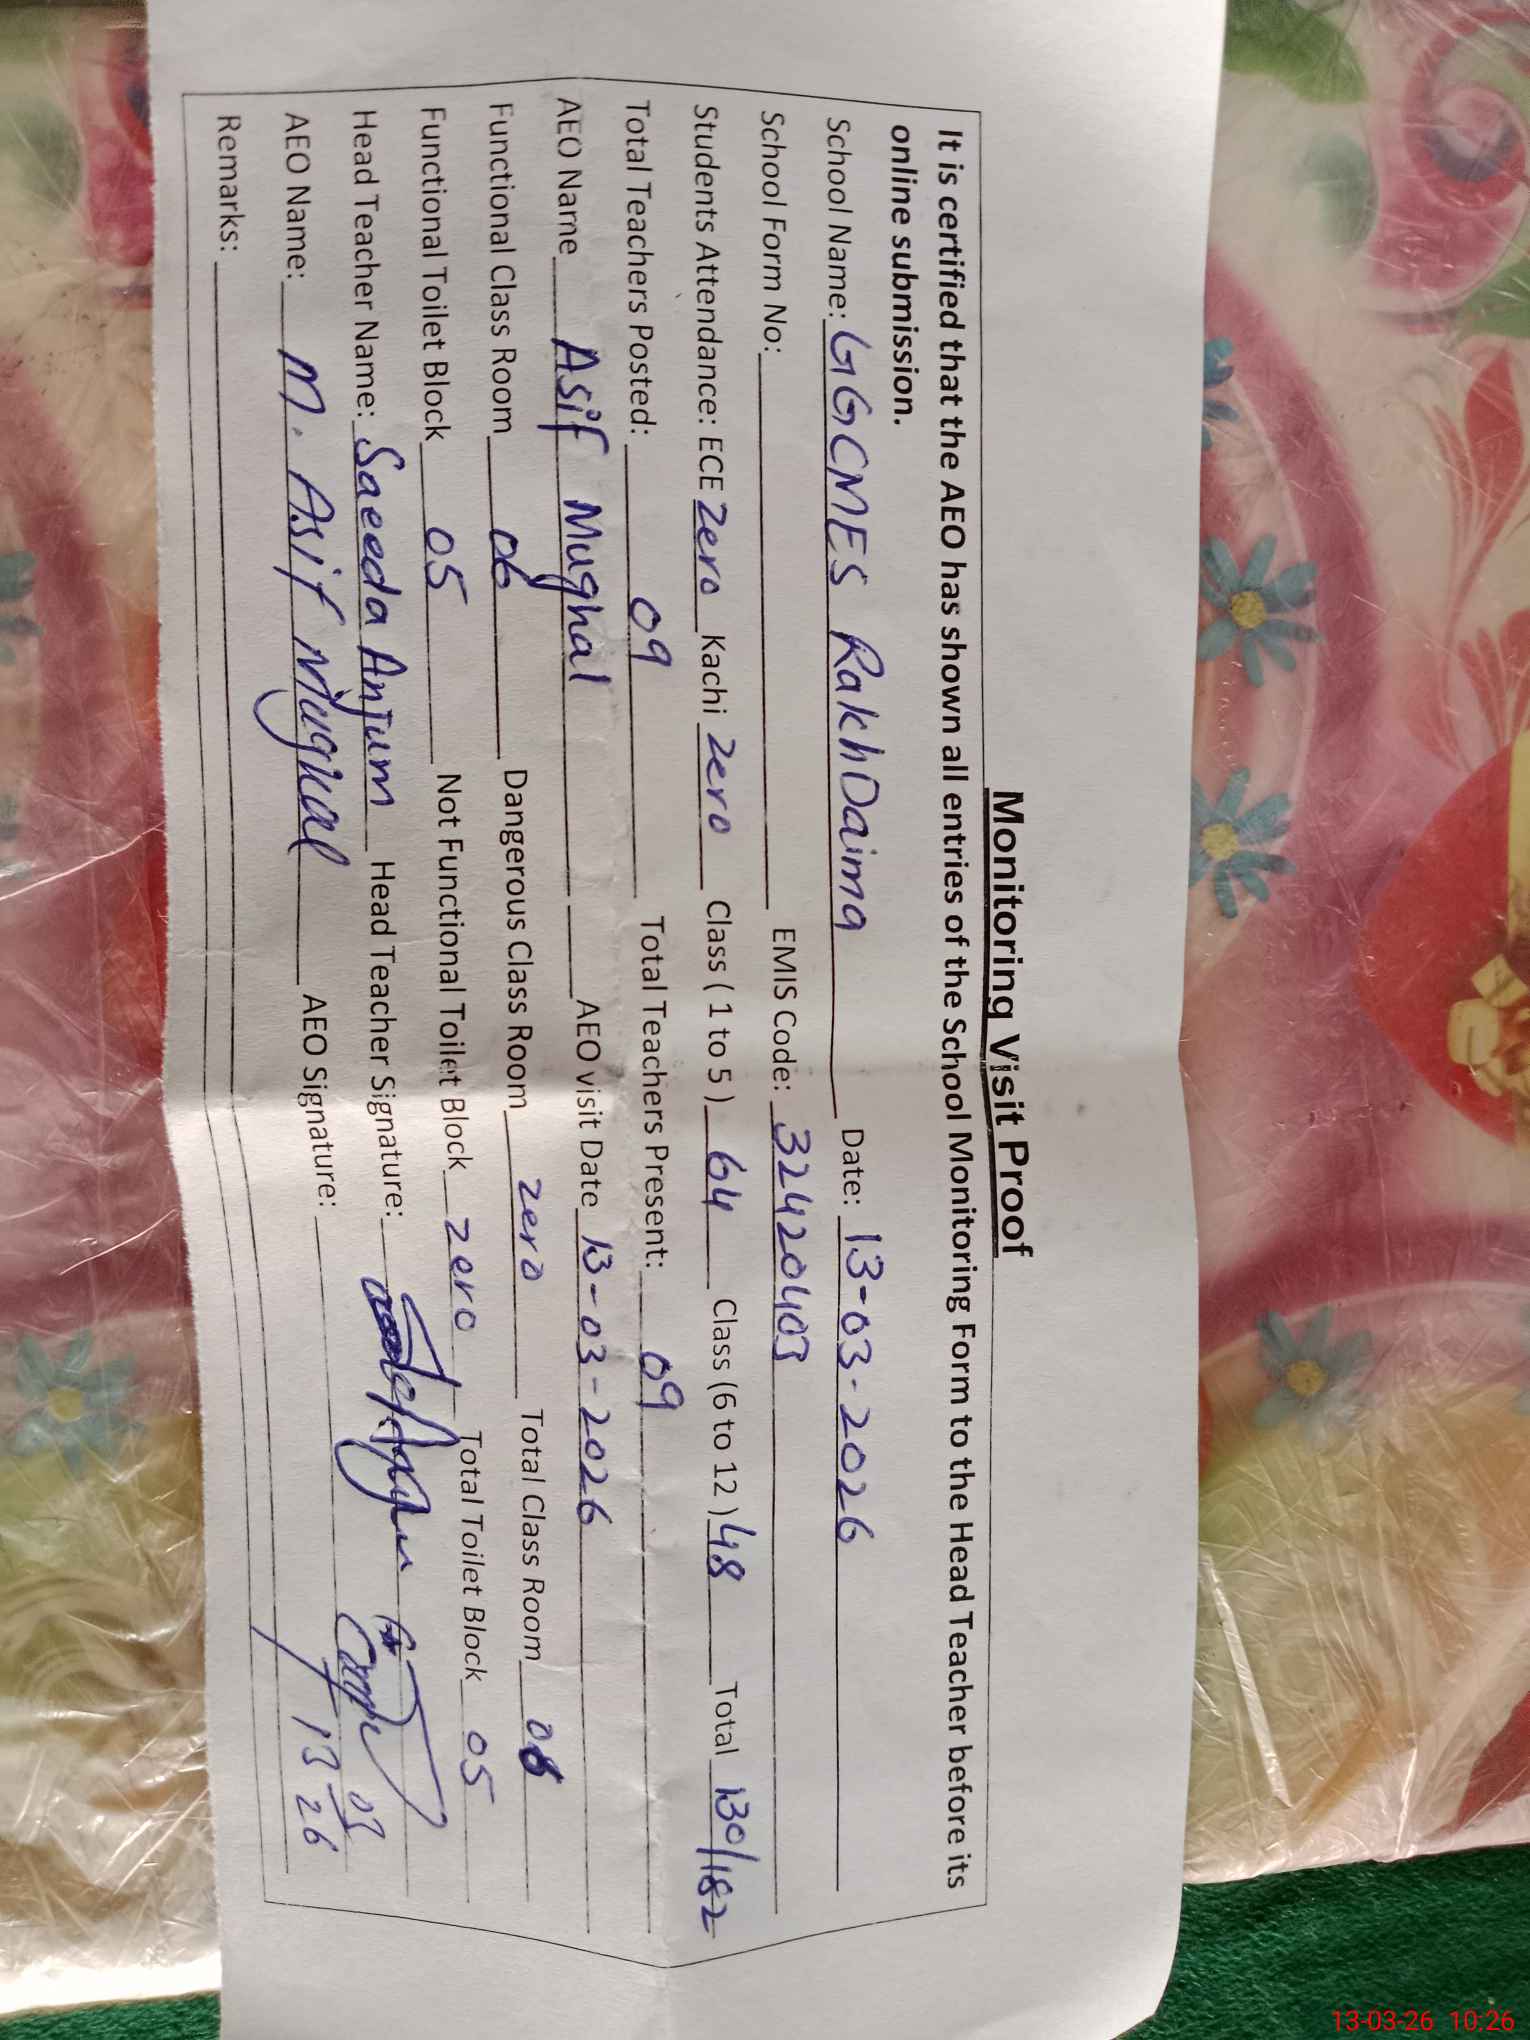 Monitoring Visit Proof
It is certified that the AEO has shown all entries of the School Monitoring Form to the Head Teacher before its
online submission.
School Name: GGCMES RakhDaima Date: 13-03-2026
School Form No: EMIS Code: 32420403
Students Attendance: ECE zero Kachi zero Class ( 1 to 5 ) 64 Class (6 to 12 ) 48 Total 130/182
Total Teachers Posted: 09 Total Teachers Present: 09
AEO Name Asif Mughal AEO visit Date 13-03-2026
Functional Class Room 06 Dangerous Class Room zero Total Class Room 06
Functional Toilet Block 05 Not Functional Toilet Block zero Total Toilet Block 05
Head Teacher Name: Saeeda Anjum Head Teacher Signature:
AEO Name: M. Asif Mugual AEO Signature: 13 03 26
Remarks:
13-03-26 10:26